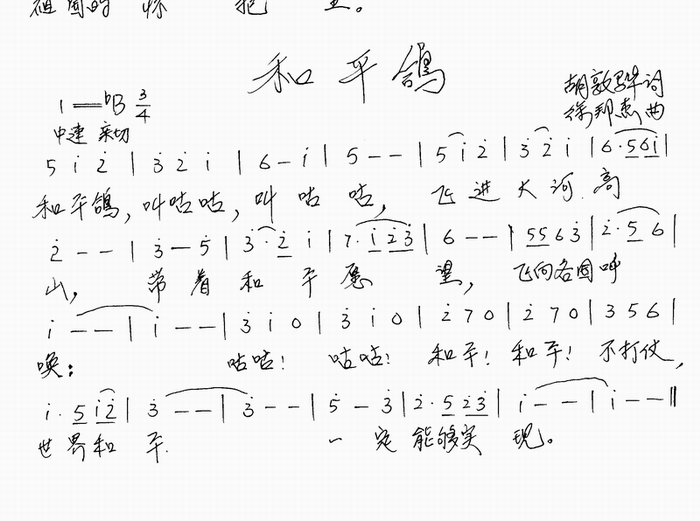 祖国的怀抱里。
和平鸽
1=♭B 3/4
胡敦骅词
中速 亲切
徐邦杰曲
5 i̇ 2̇ | 3̇ 2̇ i̇ | 6 - i̇ | 5 - - | 5 i̇ 2̇ | 3̇ 2̇ i̇ | 6· 5 6 i̇ |
和平鸽,叫咕咕,叫咕咕,飞进大河高
2̇ - - | 3̇ - 5̇ | 3̇· 2̇ i̇ | 7· i̇ 2̇ 3̇ | 6 - - | 5 5 6 3̇ | 2̇· 5 6 |
山,带着和平愿望,飞向各国呼
i̇ - - | i̇ - - | 3̇ i̇ 0 | 3̇ i̇ 0 | 2̇ 7 0 | 2̇ 7 0 | 3 5 6 |
唤:咕咕!咕咕!和平!和平!不打仗,
i̇· 5 i̇ 2̇ | 3̇ - - | 3̇ - - | 5̇ - 3̇ | 2̇· 5 2̇ 3̇ | i̇ - - | i̇ - - ‖
世界和平一定能够实现。